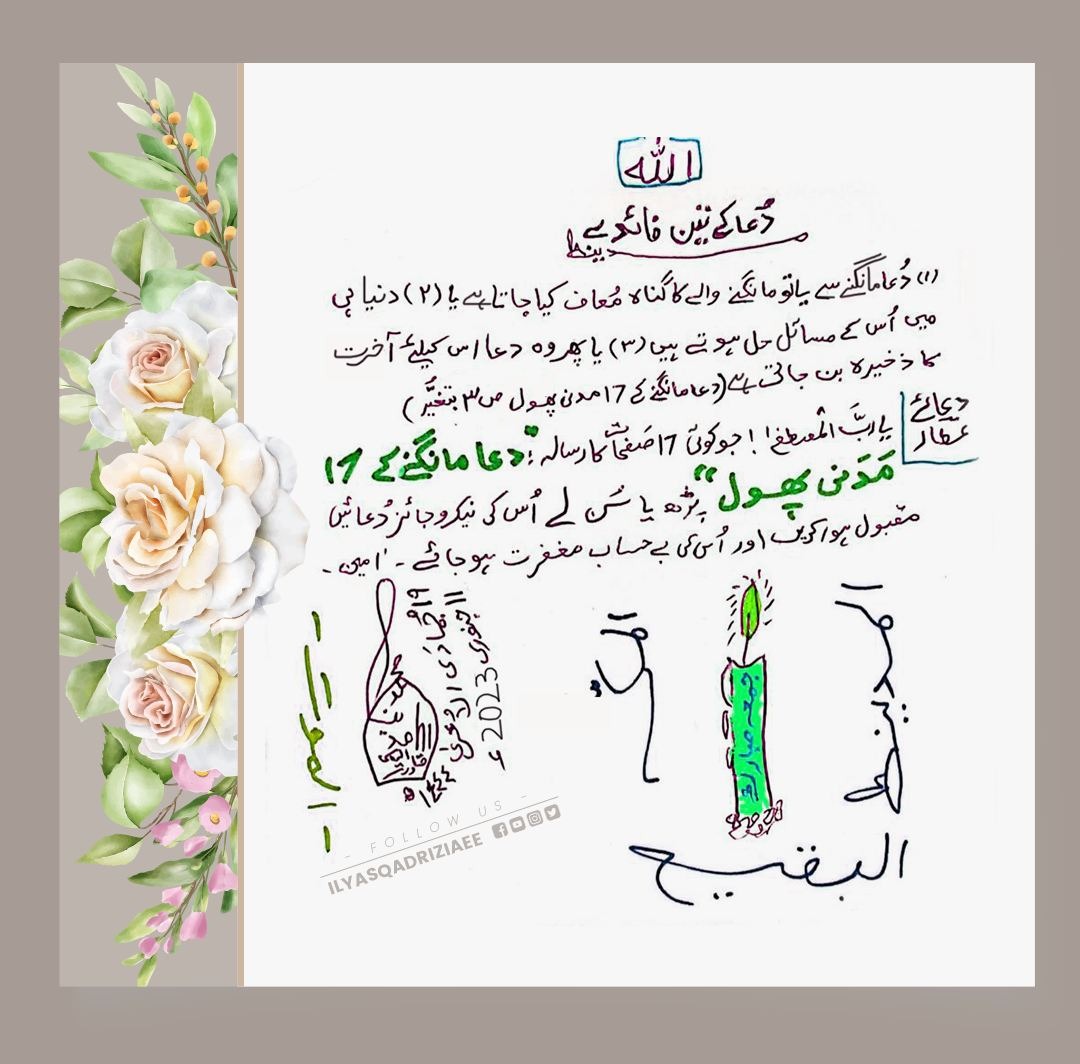 اللہ
دُعا کے تین فائدے
(۱) دُعا مانگنے سے یا تو مانگنے والے کا گناہ مُعاف کیا جاتا ہے یا (۲) دنیا ہی
میں اُس کے مسائل حل ہوتے ہیں (۳) یا پھر وہ دعا اس کیلئے آخرت
کا ذخیرہ بن جاتی ہے (دعا مانگنے کے 17 مدنی پھول ص۳ بتغیُّر)
دعائے
عطار
یا ربَّ المُصطفٰے! جو کوئی 17 صَفحات کا رسالہ: "دعا مانگنے کے 17
مَدَنی پھول" پڑھ یا سُن لے اُس کی نیک و جائز دُعائیں
مقبول ہوا کریں اور اُس کی بے حساب مغفرت ہو جائے ۔ امین ۔
المدینہ
جمعہ مبارک
البقیع
۱۹ جُمادَی الاُخریٰ
۱۴۴۴ھ
۱۱ جنوری 2023ء
- FOLLOW US -
ILYASQADRIZIAEE